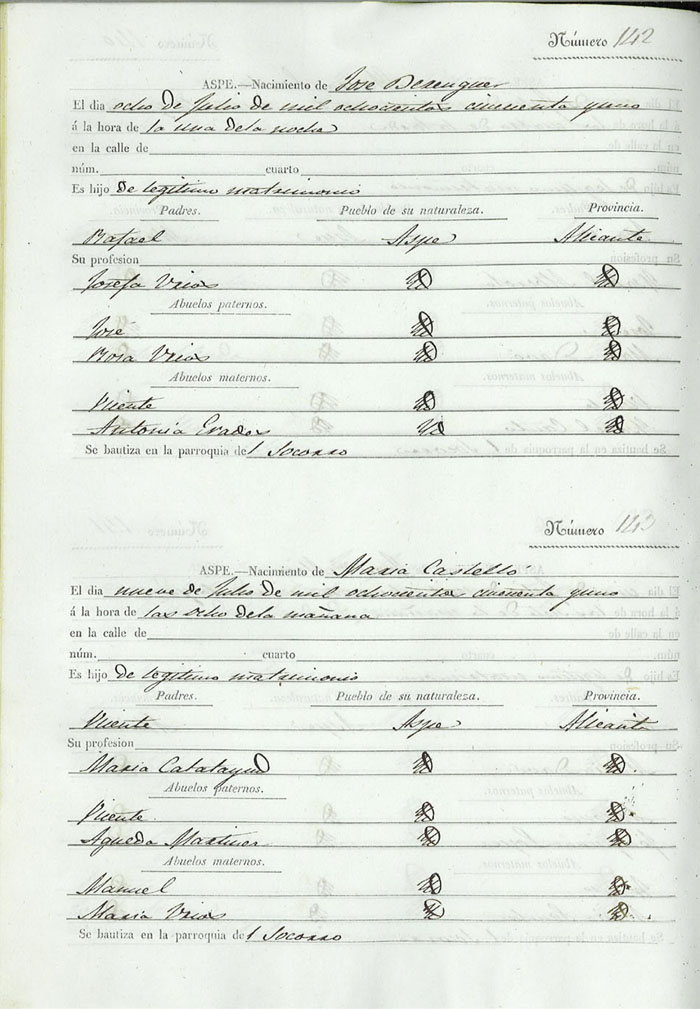 Número 142
ASPE.—Nacimiento de Jose Berenguer
El dia ocho de Julio de mil ochocientos cincuenta y uno
á la hora de la una de la noche
en la calle de
núm. cuarto
Es hijo de legitimo matrimonio
Padres. Pueblo de su naturaleza. Provincia.
Rafael Aspe Alicante
Su profesion
Josefa Urios id id
Abuelos paternos.
José id id
Rosa Urios id id
Abuelos maternos.
Vicente id id
Antonia id id
Se bautiza en la parroquia del Socorro
Número 143
ASPE.—Nacimiento de Maria Castelló
El dia nueve de Julio de mil ochocientos cincuenta y uno
á la hora de las ocho de la mañana
en la calle de
núm. cuarto
Es hijo de legitimo matrimonio
Padres. Pueblo de su naturaleza. Provincia.
Vicente Aspe Alicante
Su profesion
Maria Calatayud id id
Abuelos paternos.
Vicente id id
Agueda Martinez id id
Abuelos maternos.
Manuel id id
Maria Urios id id
Se bautiza en la parroquia del Socorro